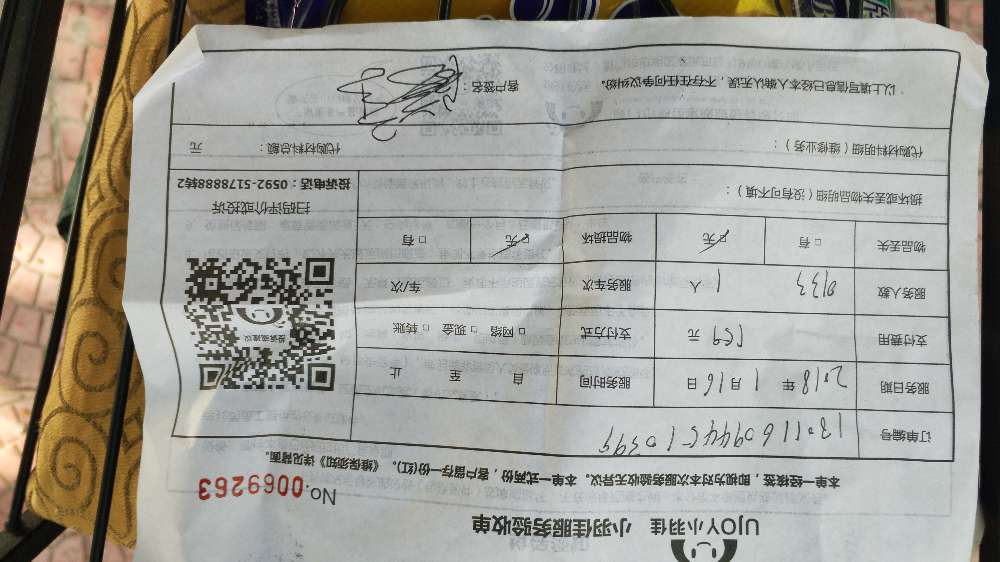 UJOY小羽佳 小羽佳服务验收单
No. 0069263
本单一经核签，即视为对本次服务验收无异议。本单一式两份，客户留存一份(红)。《维保须知》详见背面。
订单编号
服务日期 2018 年 1 月 16 日 服务时间 自 至 止
支付费用 159 元 支付方式 □ 网络 □ 现金 □ 转账
服务人数 0133 1 人 服务车次 车/次
物品丢失 □ 有 □ 无 物品损坏 □ 无 □ 有
损坏或丢失物品明细（没有可不填）：
扫码评价或投诉
投诉电话：0592-5178888转2
代购材料明细（维修业务）： 代购材料总额： 元
以上填写信息已经本人确认无误，不存在任何争议纠纷。 客户签名：